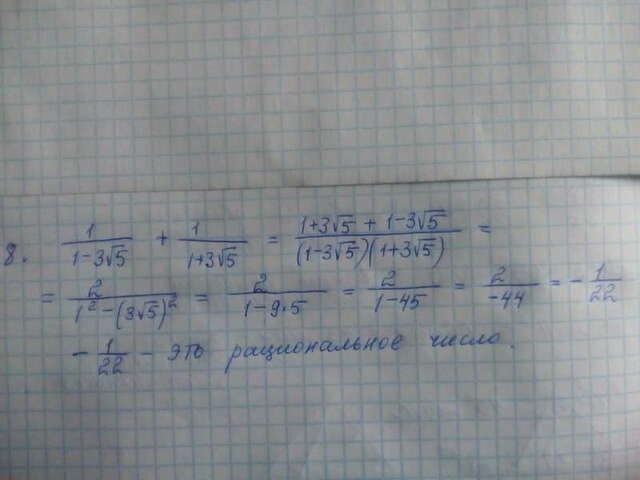 8. 1/(1-3√5) + 1/(1+3√5) = (1+3√5 + 1-3√5)/((1-3√5)(1+3√5)) =
= 2/(1²-(3√5)²) = 2/(1-9·5) = 2/(1-45) = 2/(-44) = -1/22
-1/22 - это рациональное число.